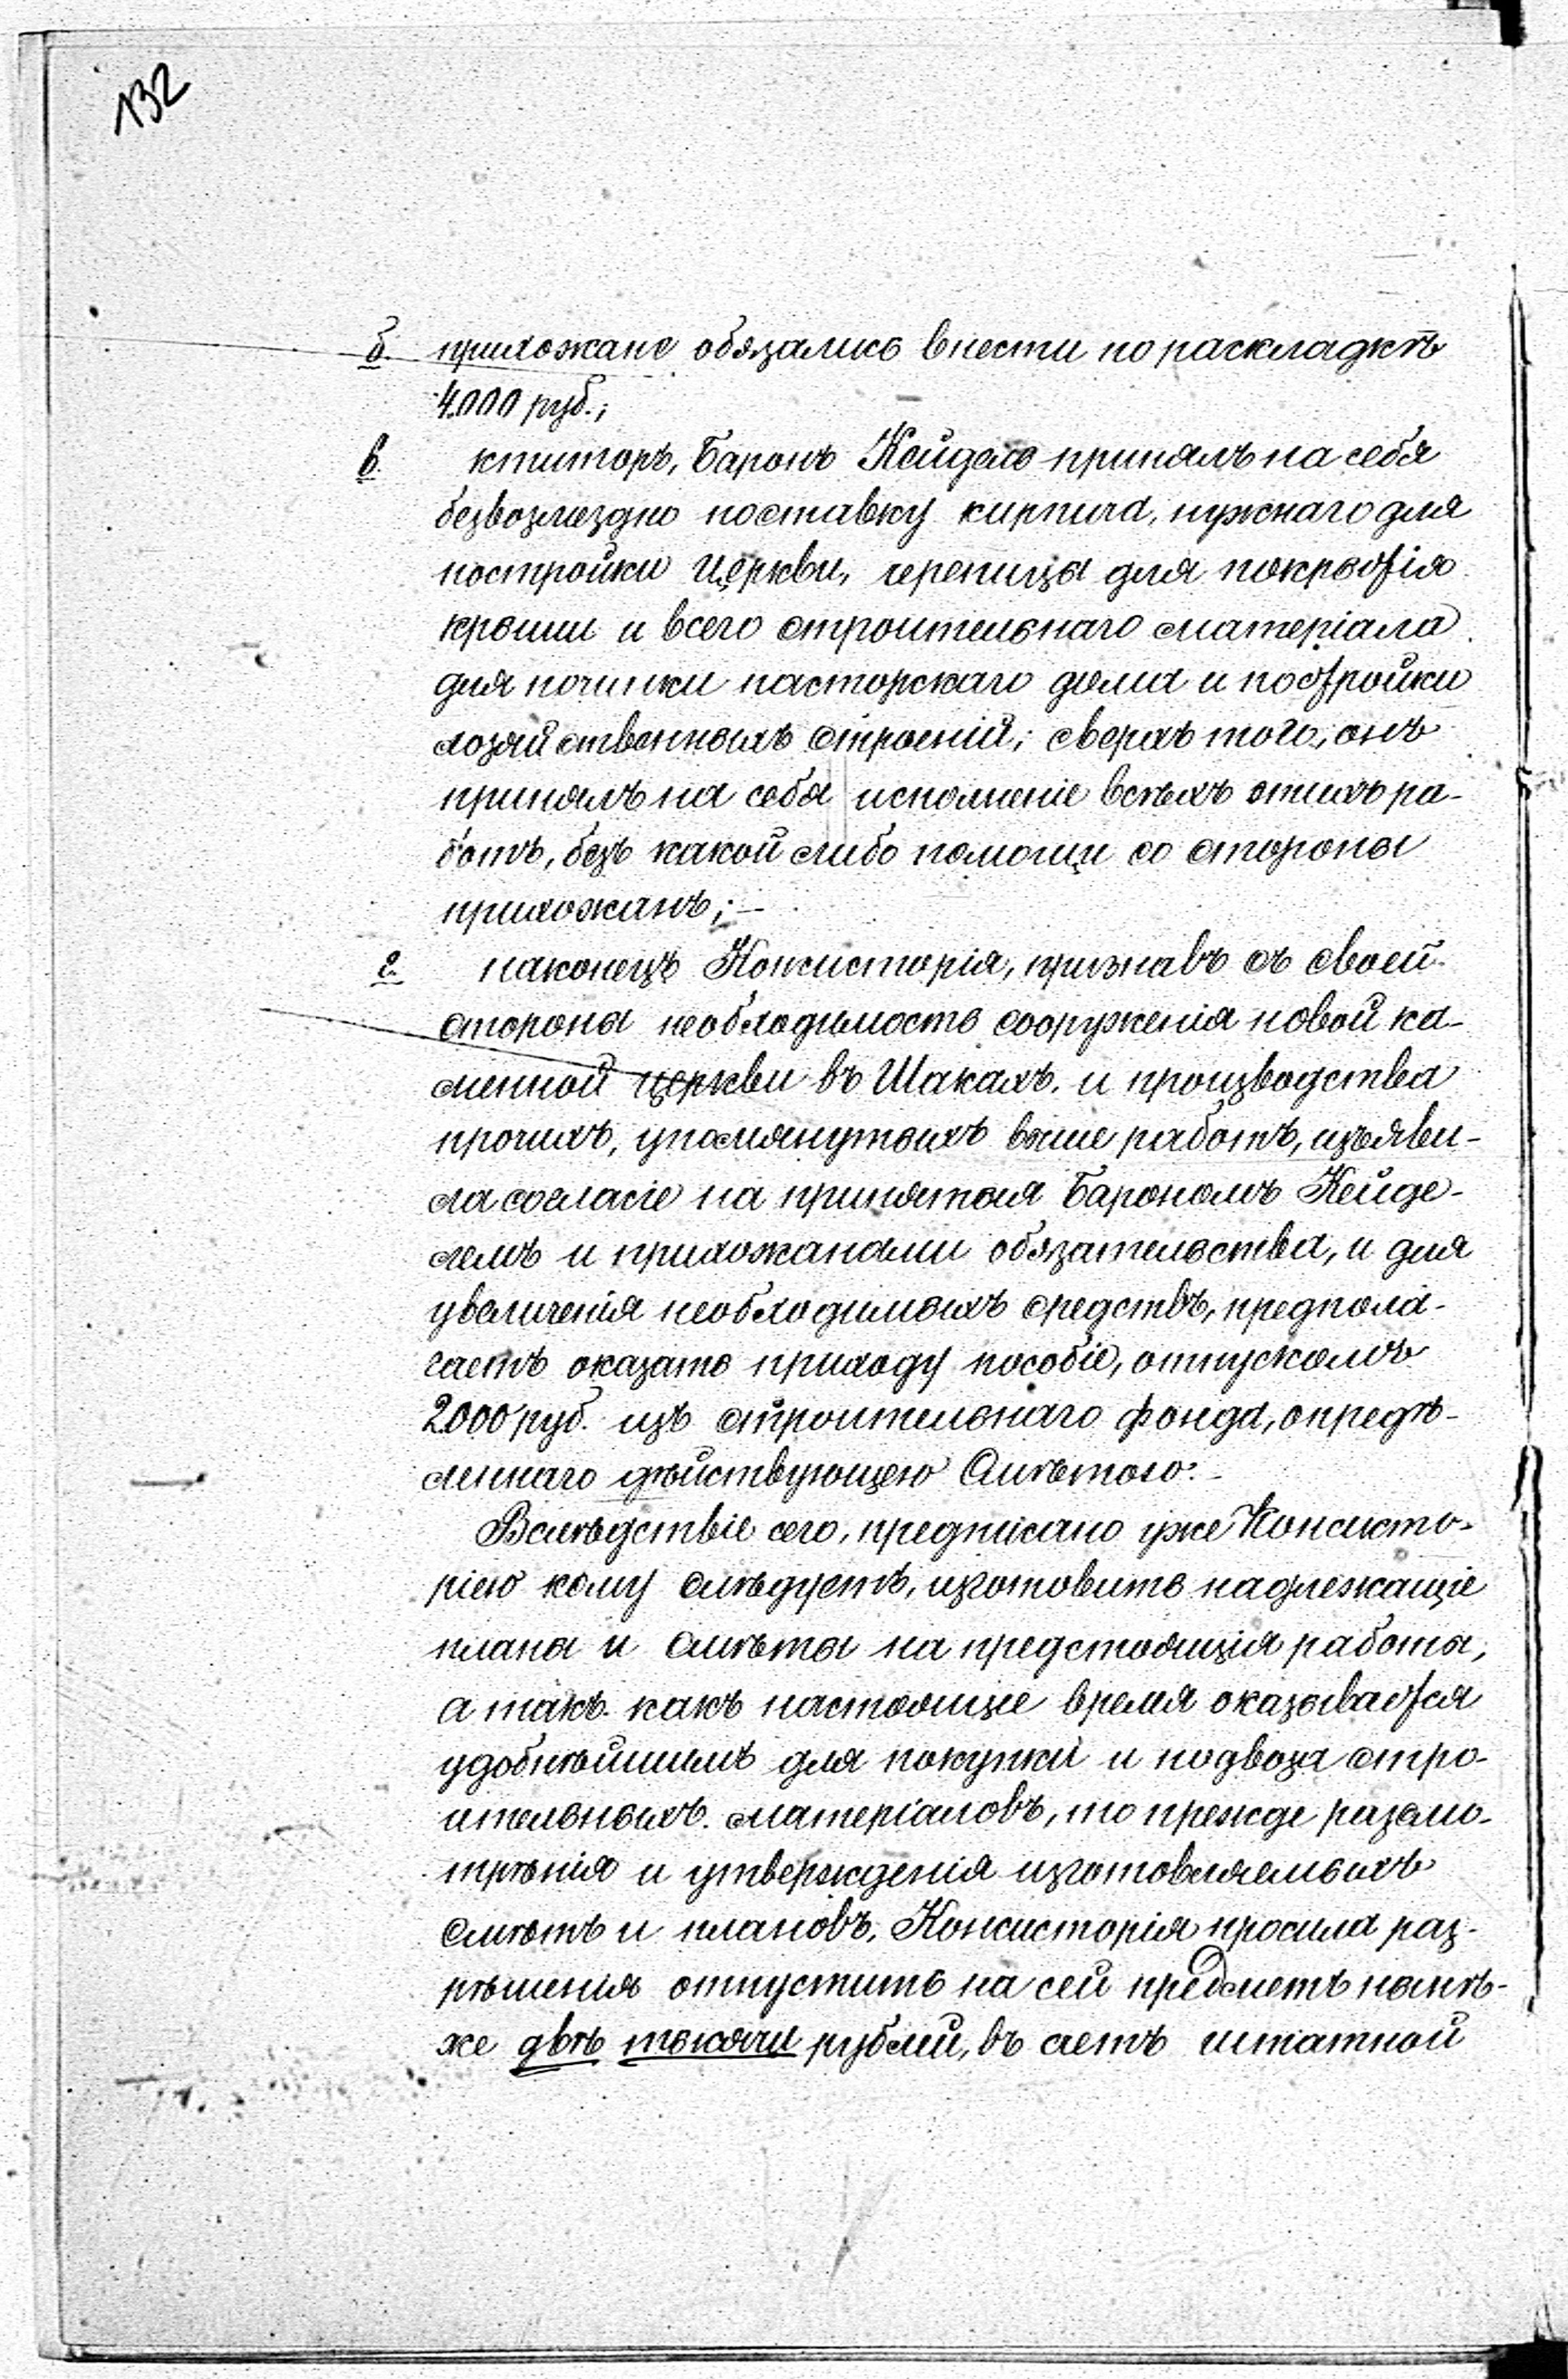 132
б. прихожане обязались внести по раскладкѣ
4.000 руб.;
в. ктиторъ, Баронъ Кейдель принялъ на себя
безвозмездно поставку кирпича, нужнаго для
постройки церкви, черепицы для покрытія
крыши и всего строительнаго матеріала
для починки пасторскаго дома и постройки
хозяйственныхъ строеній; сверхъ того, онъ
принялъ на себя исполненіе всѣхъ этихъ ра-
ботъ, безъ какой либо помощи со стороны
прихожанъ; -
г. наконецъ Консисторія, признавъ съ своей
стороны необходимость сооруженія новой ка-
менной церкви въ Шакахъ. и производства
прочихъ, упомянутыхъ выше работъ, изъяви-
ла согласіе на принятыя Барономъ Кейде-
лемъ и прихожанами обязательства, и для
увеличенія необходимыхъ средствъ, предпола-
гаетъ оказать приходу пособіе, отпускомъ
2.000 руб. изъ строительнаго фонда, опредѣ-
леннаго дѣйствующею Смѣтою. -
Вслѣдствіе сего, предписано уже Консисто-
ріею кому слѣдуетъ, изготовить надлежащіе
планы и смѣты на предстоящія работы,
а такъ какъ настоящее время оказывается
удобнѣйшимъ для покупки и подвоза стро-
ительныхъ матеріаловъ, то прежде разсмо-
трѣнія и утвержденія изготовляемыхъ
смѣтъ и плановъ, Консисторія просила раз-
рѣшенія отпустить на сей предметъ нынѣ-
же двѣ тысячи рублей, въ счетъ штатной